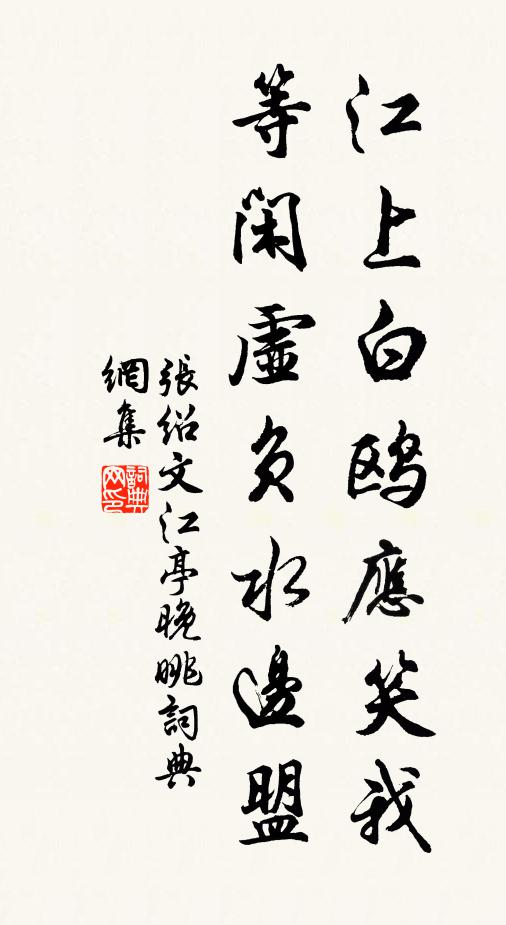 江上白鷗應笑我
等閑虛負水邊盟
張紹文江亭晚眺詞典
網集
詞典
网印